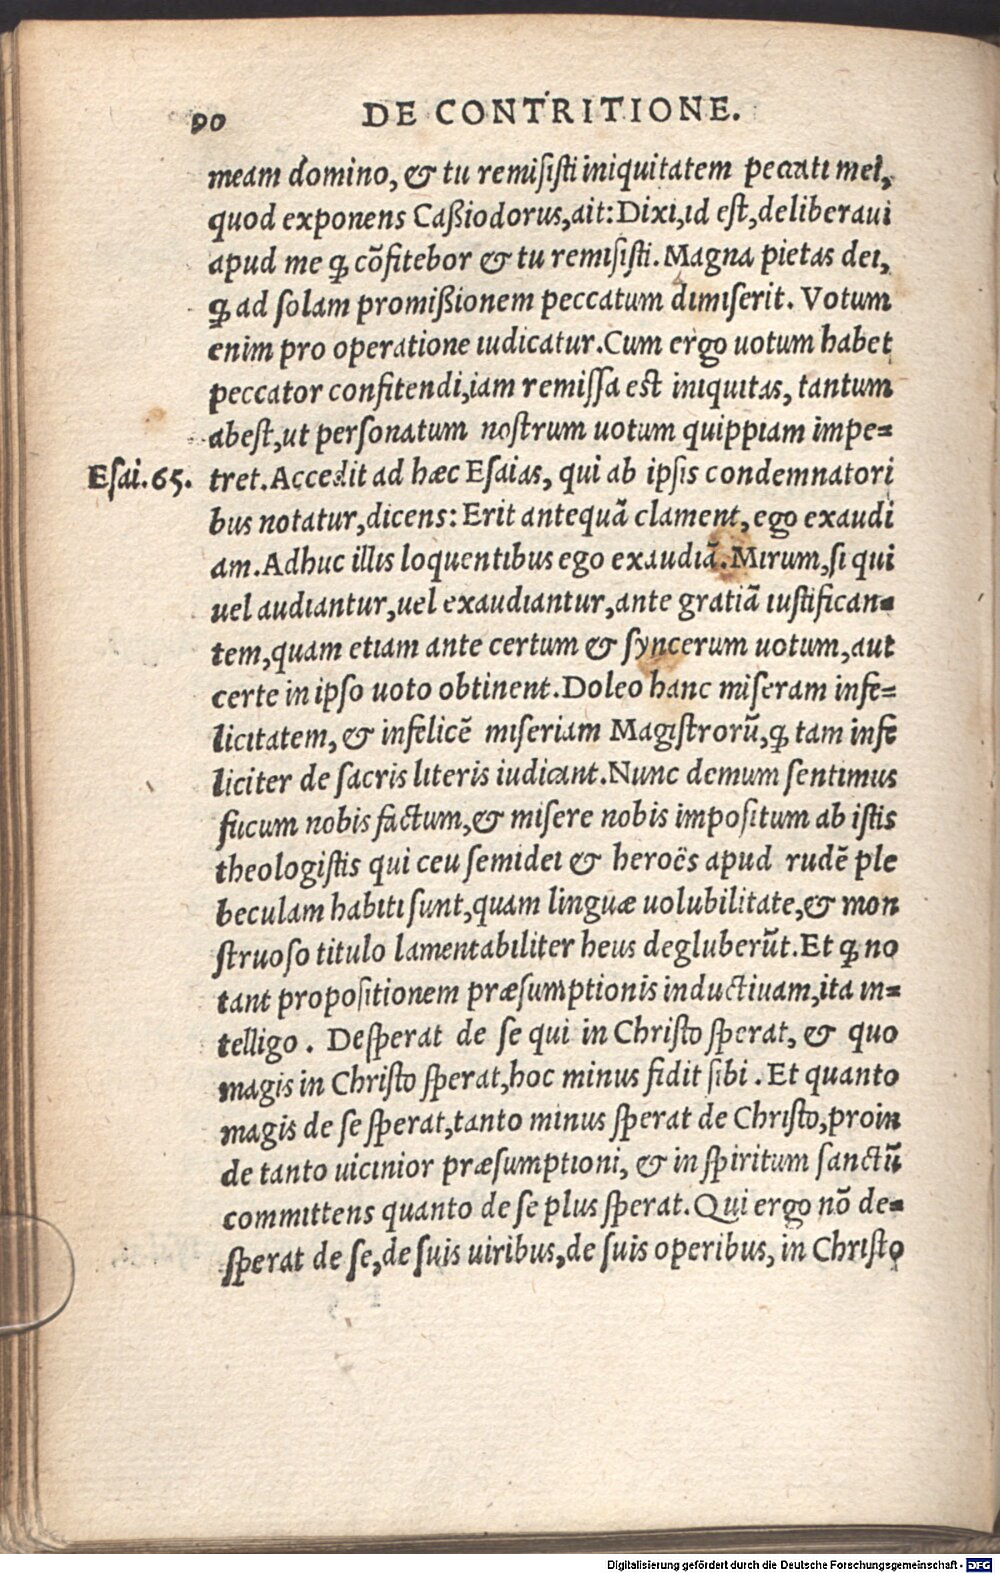 90 DE CONTRITIONE.
meam domino, & tu remisisti iniquitatem peccati mei,
quod exponens Caßiodorus, ait: Dixi, id est, deliberaui
apud me ꝙ cõfitebor & tu remisisti. Magna pietas dei,
ꝙ ad solam promißionem peccatum dimiserit. Votum
enim pro operatione iudicatur. Cum ergo uotum habet
peccator confitendi, iam remissa est iniquitas, tantum
abest, ut personatum nostrum uotum quippiam impe=
Esai. 65. tret. Accedit ad hæc Esaias, qui ab ipsis condemnatori
bus notatur, dicens: Erit antequã clament, ego exaudi
am. Adhuc illis loquentibus ego exaudiã. Mirum, si qui
uel audiantur, uel exaudiantur, ante gratiã iustifican=
tem, quam etiam ante certum & syncerum uotum, aut
certe in ipso uoto obtinent. Doleo hanc miseram infe=
licitatem, & infelicẽ miseriam Magistrorũ, ꝙ tam infe
liciter de sacris literis iudicant. Nunc demum sentimus
fucum nobis factum, & misere nobis impositum ab istis
theologistis qui ceu semidei & heroës apud rudẽ ple
beculam habiti sunt, quam linguæ uolubilitate, & mon
struoso titulo lamentabiliter heus degluberũt. Et ꝙ no
tant propositionem præsumptionis inductiuam, ita in=
telligo. Desperat de se qui in Christo sperat, & quo
magis in Christo sperat, hoc minus fidit sibi. Et quanto
magis de se sperat, tanto minus sperat de Christo, proin
de tanto uicinior præsumptioni, & in spiritum sanctũ
committens quanto de se plus sperat. Qui ergo nõ de=
sperat de se, de suis uiribus, de suis operibus, in Christo
Digitalisierung gefördert durch die Deutsche Forschungsgemeinschaft - DFG